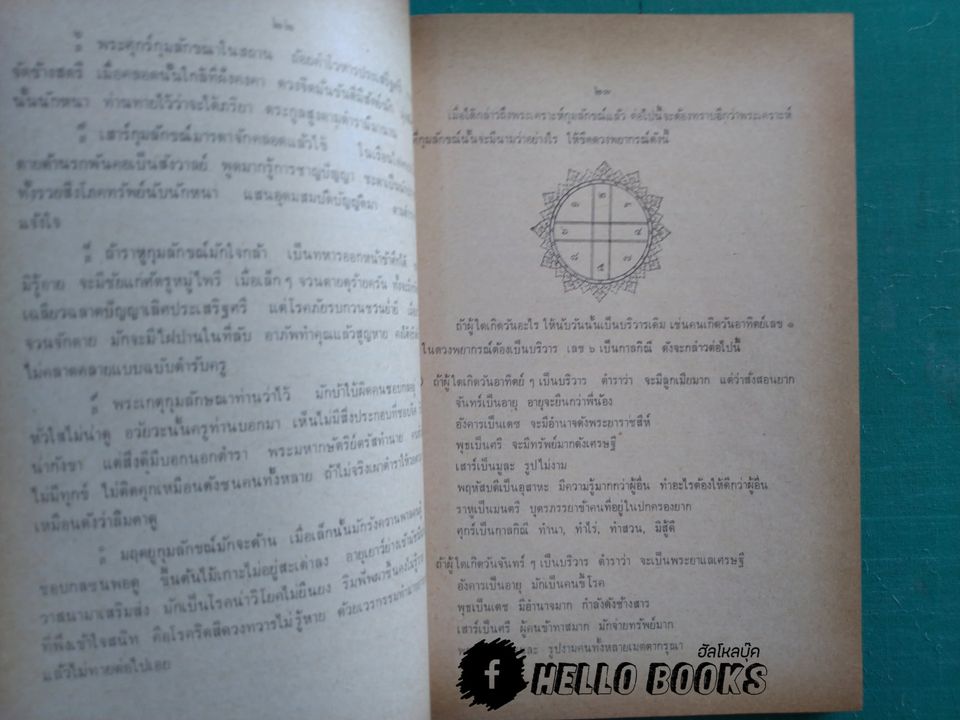 ๒๒
๕ พระศุกร์กุมลักขณาในสถาน ถ้อยคำโวหารประเสริฐศรี
จัดช้างสตรี เมื่อคลอดนั้นใกล้ที่ฝั่งคงคา ดวงจิตมันขันดีมีสัตย์นัก
นั้นนักหนา ท่านทายไว้ว่าจะได้ภริยา ตระกูลสูงตามตำราโบราณ
๕ เสาร์กุมลักขณ์มารดาจักคลอดแล้วไซ้ ในเรือน
ตายด้านรกพันคอเป็นสังวาลย์ พูดมากรู้การชาญปัญญา ชะตา
ทั้งรวยสิ่งโภคทรัพย์นับนักหนา แสนอุดมสมบัติบัญญัติมา
แจ้งใจ
๕ ถ้าราหูกุมลักขณ์มักใจกล้า เป็นทหารออกหน้าข้าศึกได้
มิรู้อาย จะมีชัยแก่ศัตรูหมู่ไพรี เมื่อเล็กๆ จวนตายดุร้ายครัน
เฉลียวฉลาดปัญญาเลิศประเสริฐศรี แต่โรคภัยรบกวนชวนย่ำยี
จวนจักตาย มักจะมีไฝปานในที่ลับ อาภัพทำคุณแล้วสูญหาย
ไม่คลาดคลายแบบแปบตำรับครู
๕ พระเกตุกุมลักขณาท่านว่าไว้ มักบ้าใบ้ผิดคนชอบกลอยู่
หัวใสไม่น่าดู อวัยวะนั้นครูท่านบอกมา เห็นไม่มีสิ่งประกอบที่ชอบ
น่ากังขา แต่สิ่งดีมีบอกนอกตำรา พระมหากษัตริย์ตรัสทำนาย
ไม่มีทุกข์ ไม่ติดคุกเหมือนดังชนคนทั้งหลาย ถ้าไม่จริงเผาตำรา
เหมือนดังว่าลืมตาดู
๕ มฤตยูกุมลักขณ์มักจะด้าน เมื่อเล็กนั้นมักรังควาน
ชอบกลซนพอดู ขึ้นต้นไม้เกาะไม่อยู่สะเด่าลง อายุเยาว์
วาสนามาเสริมส่ง มักเป็นโรคน่าวิโยคไม่ยืนยง
ที่พึ่งเข้าใจสนิท คือโรคริดสีดวงทวารไม่รู้หาย ด้วยเวรกรรม
แล้วไม่ทายต่อไปเอย
๒๓
เมื่อได้กล่าวถึงพระเคราะห์กุมลักขณ์แล้ว ต่อไปนี้จะต้องทราบอีกว่าพระเคราะห์
ที่กุมลักขณ์นั้นจะมีนามว่าอย่างไร ให้ขีดดวงพยากรณ์ดังนี้
๑ ๒ ๓
๖ ๔
๘ ๕ ๗
ถ้าผู้ใดเกิดวันอะไร ให้นับวันนั้นเป็นบริวารเดิม เช่นคนเกิดวันอาทิตย์เลข ๑
ในดวงพยากรณ์ต้องเป็นบริวาร เลข ๖ เป็นกาลกิณี ดังจะกล่าวต่อไปนี้
ถ้าผู้ใดเกิดวันอาทิตย์ ๆ เป็นบริวาร ตำราว่า จะมีลูกเมียมาก แต่ว่าสั่งสอนยาก
จันทร์เป็นอายุ อายุจะยืนกว่าพี่น้อง
อังคารเป็นเดช จะมีอำนาจดังพระยาราชสีห์
พุธเป็นศรี จะมีทรัพย์มากดังเศรษฐี
เสาร์เป็นมูละ รูปไม่งาม
พฤหัสบดีเป็นอุสาหะ มีความรู้มากกว่าผู้อื่น ทำอะไรต้องให้ดีกว่าผู้อื่น
ราหูเป็นมนตรี บุตรภรรยาข้าคนที่อยู่ในปกครองยาก
ศุกร์เป็นกาลกิณี ทำนา, ทำไร่, ทำสวน, มิสู้ดี
ถ้าผู้ใดเกิดวันจันทร์ ๆ เป็นบริวาร ตำราว่า จะเป็นพระยาแลเศรษฐี
อังคารเป็นอายุ มักเป็นคนขี้โรค
พุธเป็นเดช มีอำนาจมาก กำลังดังช้างสาร
เสาร์เป็นศรี ผู้คนข้าทาสมาก มักจ่ายทรัพย์มาก
รูปงามคนทั้งหลายเมตตากรุณา
ฮัลโหลบุ๊ค
f HELLO BOOKS